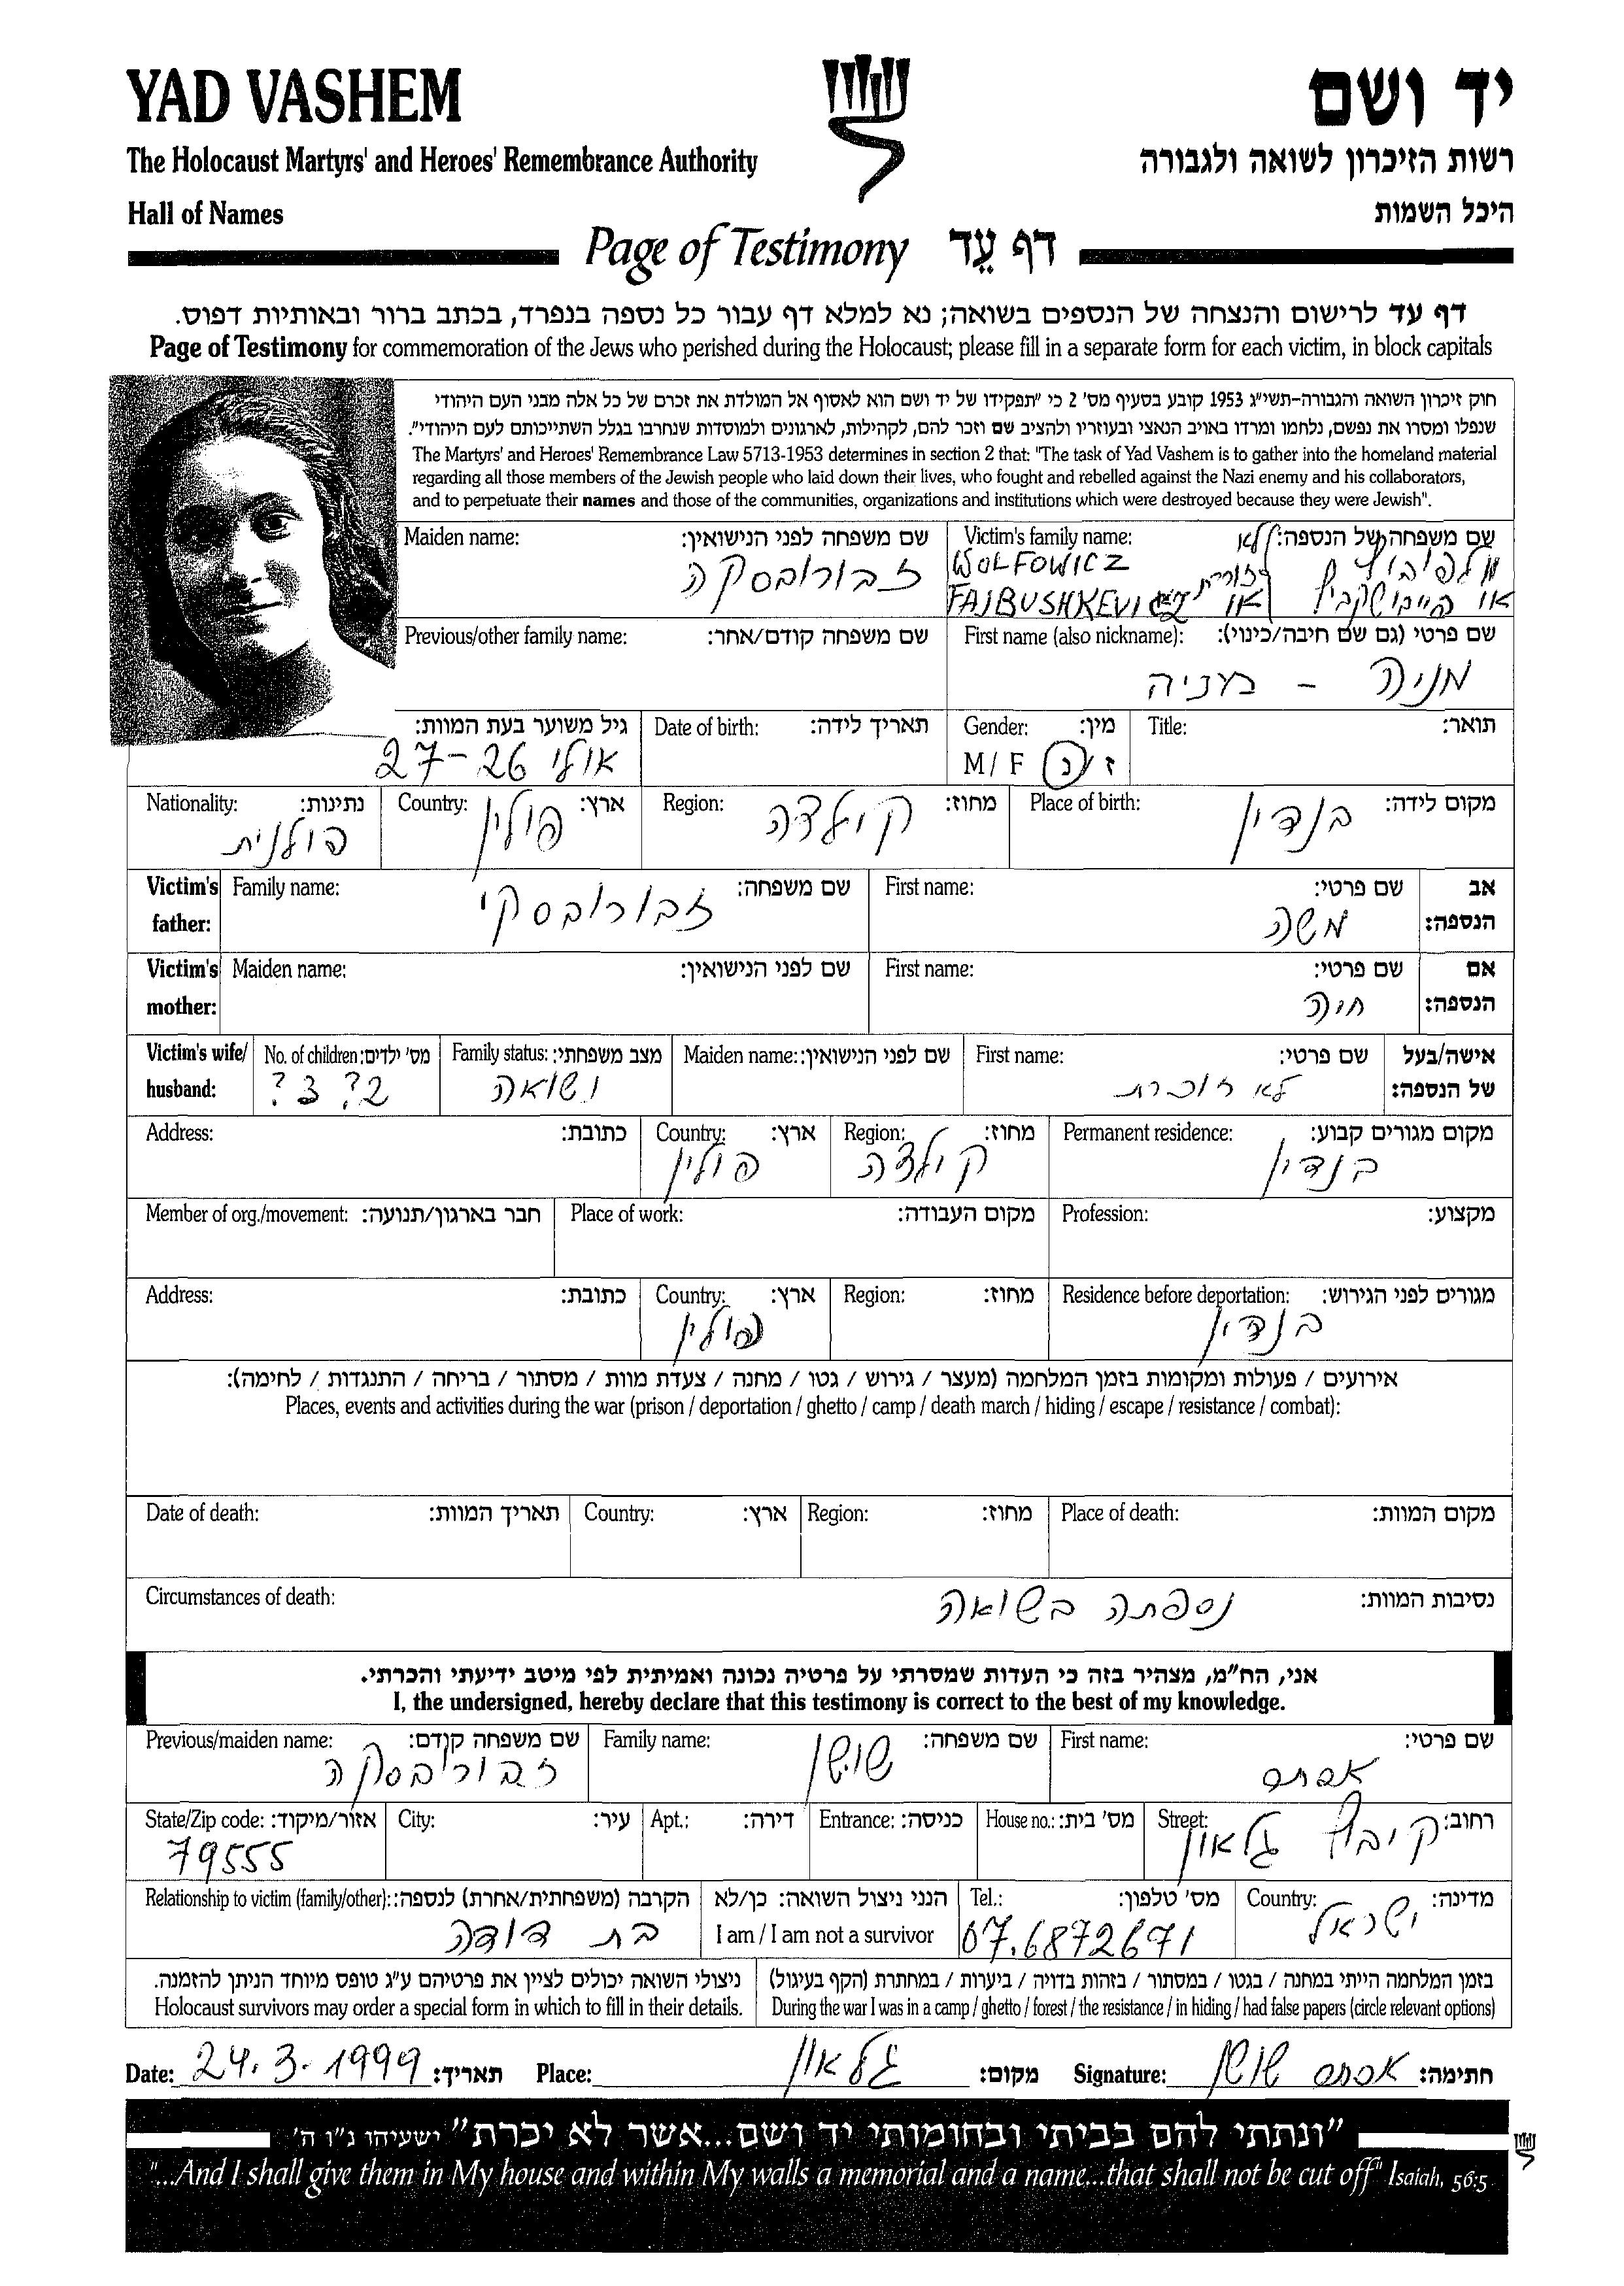 YAD VASHEM
יד ושם
The Holocaust Martyrs' and Heroes' Remembrance Authority
רשות הזיכרון לשואה ולגבורה
Hall of Names
היכל השמות
Page of Testimony דף עֵד
דף עד לרישום והנצחה של הנספים בשואה; נא למלא דף עבור כל נספה בנפרד, בכתב ברור ובאותיות דפוס.
Page of Testimony for commemoration of the Jews who perished during the Holocaust; please fill in a separate form for each victim, in block capitals
חוק זיכרון השואה והגבורה-תשי"ג 1953 קובע בסעיף מס' 2 כי "תפקידו של יד ושם הוא לאסוף אל המולדת את זכרם של כל אלה מבני העם היהודי
שנפלו ומסרו את נפשם, נלחמו ומרדו באויב הנאצי ובעוזריו ולהציב שם וזכר להם, לקהילות, לארגונים ולמוסדות שנחרבו בגלל השתייכותם לעם היהודי".
The Martyrs' and Heroes' Remembrance Law 5713-1953 determines in section 2 that: "The task of Yad Vashem is to gather into the homeland material
regarding all those members of the Jewish people who laid down their lives, who fought and rebelled against the Nazi enemy and his collaborators,
and to perpetuate their names and those of the communities, organizations and institutions which were destroyed because they were Jewish".
שם משפחה של הנספה: Victim's family name:
לא
וולפוביץ WOLFOWICZ
זוכרת
או פייבושקביץ או FAJBUSHKEVICZ
שם משפחה לפני הנישואין: Maiden name:
זבורובסקה
שם פרטי (גם שם חיבה/כינוי): First name (also nickname):
מניה - מניה
שם משפחה קודם/אחר: Previous/other family name:
תואר: Title:
מין: Gender:
ז / נ M / F
תאריך לידה: Date of birth:
גיל משוער בעת המוות:
אולי 26-27
מקום לידה: Place of birth:
בנדין
מחוז: Region:
קילצה
ארץ: Country:
פולין
נתינות: Nationality:
פולנית
אב הנספה: Victim's father:
שם פרטי: First name:
משה
שם משפחה: Family name:
זבורובסקי
אם הנספה: Victim's mother:
שם פרטי: First name:
חיה
שם לפני הנישואין: Maiden name:
אישה/בעל של הנספה: Victim's wife/ husband:
שם פרטי: First name:
לא זוכרת
שם לפני הנישואין: Maiden name:
מצב משפחתי: Family status:
נשואה
מס' ילדים: No. of children:
2? 3?
מקום מגורים קבוע: Permanent residence:
בנדין
מחוז: Region:
קילצה
ארץ: Country:
פולין
כתובת: Address:
מקצוע: Profession:
מקום העבודה: Place of work:
חבר בארגון/תנועה: Member of org./movement:
מגורים לפני הגירוש: Residence before deportation:
בנדין
מחוז: Region:
ארץ: Country:
פולין
כתובת: Address:
אירועים / פעולות ומקומות בזמן המלחמה (מעצר / גירוש / גטו / מחנה / צעדת מוות / מסתור / בריחה / התנגדות / לחימה):
Places, events and activities during the war (prison / deportation / ghetto / camp / death march / hiding / escape / resistance / combat):
מקום המוות: Place of death:
מחוז: Region:
ארץ: Country:
תאריך המוות: Date of death:
נסיבות המוות: Circumstances of death:
נספתה בשואה
אני, הח"מ, מצהיר בזה כי העדות שמסרתי על פרטיה נכונה ואמיתית לפי מיטב ידיעתי והכרתי.
I, the undersigned, hereby declare that this testimony is correct to the best of my knowledge.
שם פרטי: First name:
אסתר
שם משפחה: Family name:
שושן
שם משפחה קודם: Previous/maiden name:
זבורובסקה
רחוב: Street:
קיבוץ גלאון
מס' בית: House no.:
כניסה: Entrance:
דירה: Apt.:
עיר: City:
אזור/מיקוד: State/Zip code:
79555
מדינה: Country:
ישראל
מס' טלפון: Tel.:
07.6872671
הנני ניצול השואה: כן/לא
I am / I am not a survivor
הקרבה (משפחתית/אחרת) לנספה: Relationship to victim (family/other):
בת דודה
בזמן המלחמה הייתי במחנה / בגטו / במסתור / בזהות בדויה / ביערות / במחתרת (הקף בעיגול)
During the war I was in a camp / ghetto / forest / the resistance / in hiding / had false papers (circle relevant options)
ניצולי השואה יכולים לציין את פרטיהם ע"ג טופס מיוחד הניתן להזמנה.
Holocaust survivors may order a special form in which to fill in their details.
חתימה: אסתר שושן Signature:
מקום: גלאון Place:
תאריך: 24.3.1999 Date:
"ונתתי להם בביתי ובחומותי יד ושם...אשר לא יכרת" ישעיהו נ"ו ה'
"...And I shall give them in My house and within My walls a memorial and a name...that shall not be cut off" Isaiah, 56:5